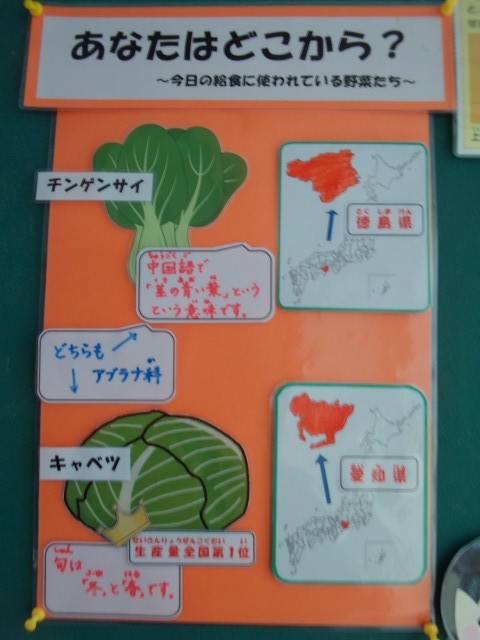 あなたはどこから？
～今日の給食に使われている野菜たち～
チンゲンサイ
とくしまけん
徳島県
ちゅうごくご
中国語で
「茎の青い葉」という
という意味です。
どちらも
アブラナ科
キャベツ
愛知県
せいさんりょうぜんこくだい い
生産量全国第1位
しゅん
旬は
ふゆ はる
「冬」と「春」です。